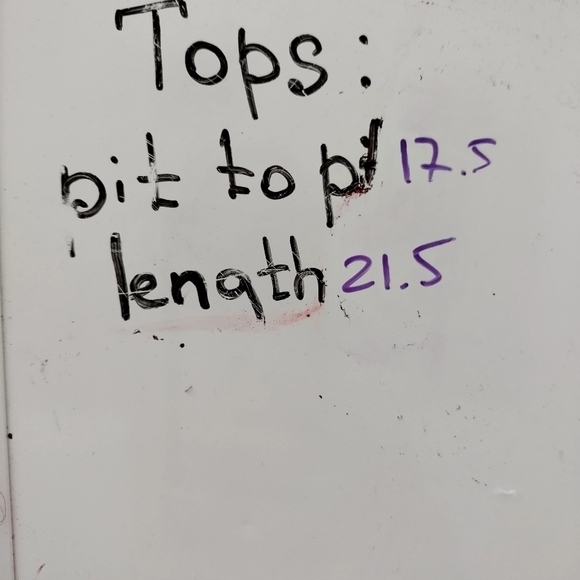 Tops:
pit to pit 17.5
length 21.5